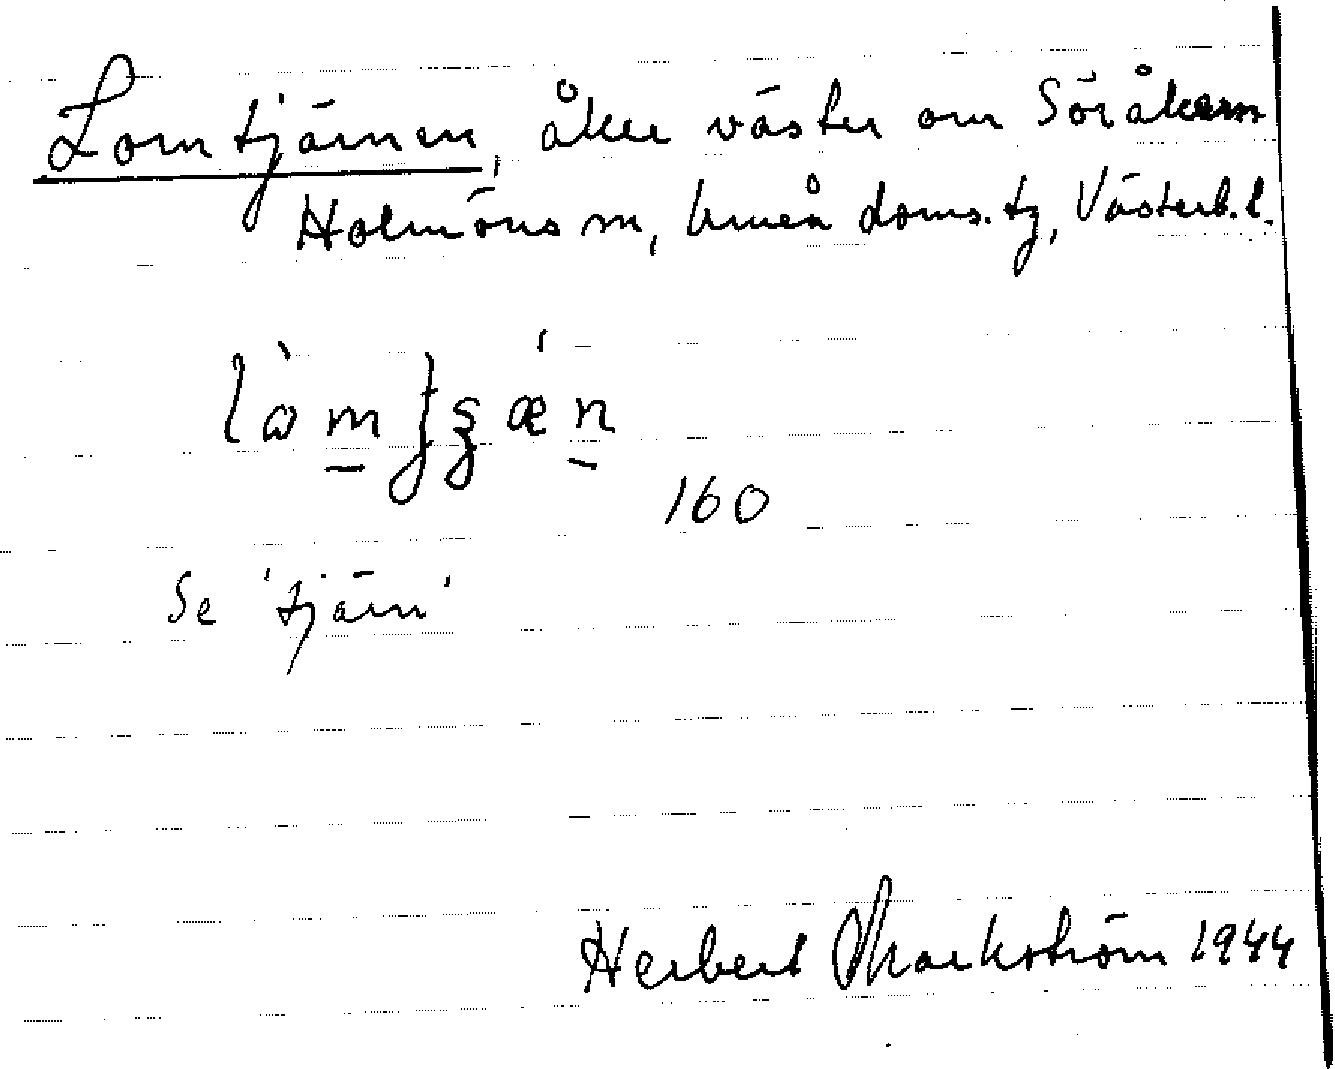 Lomtjärnen, åker väster om Söråkern
Holmöns sn, Umeå doms. tg, Västerb. l.
160
Se 'tjärn'
Herbert Markström 1944